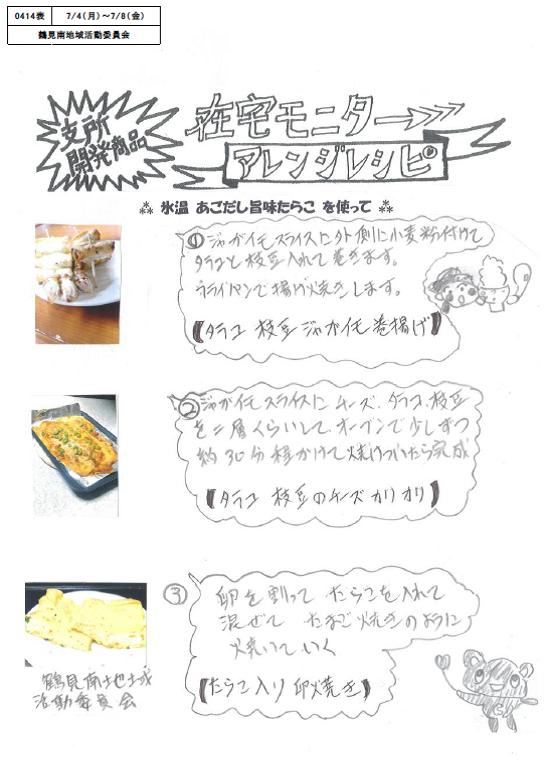 0414表 7/4(月)～7/8(金)
鶴見南地域活動委員会
支所
開発商品
在宅モニター
アレンジレシピ
氷温 あごだし旨味たらこ を使って
①ジャガイモスライスに外側に小麦粉付けて
タラコと枝豆入れて巻きます。
フライパンで揚げ焼きします。
【タラコ 枝豆ジャガイモ巻揚げ】
②ジャガイモスライスにチーズ、タラコ、枝豆
を二層くらいして、オーブンで少しずつ
約30分程かけて焼けついたら完成
【タラコ 枝豆のチーズカリカリ】
③ 卵を割って たらこを入れて
混ぜて たまご焼きのように
焼いていく
【たらこ入り卵焼き】
鶴見南地域
活動委員会